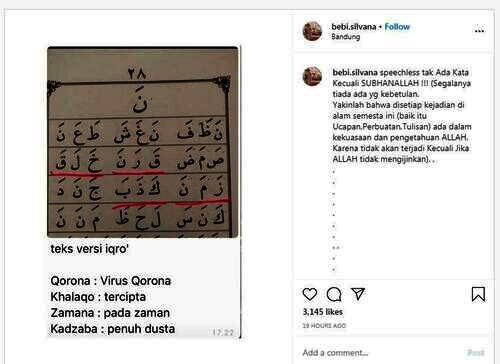 bebi.silvana • Follow
Bandung
٢٨
نَ
نَظَفَ نَغَشَ طَعَنَ
صَمَضَ قَرَنَ خَلَقَ
زَمَنَ كَذَبَ جَنَدَ
كَنَسَ لَحَظَ مَنَنَ
teks versi iqro'
Qorona : Virus Qorona
Khalaqo : tercipta
Zamana : pada zaman
Kadzaba : penuh dusta
17.22
bebi.silvana speechless tak Ada Kata
Kecuali SUBHANALLAH !!! (Segalanya
tiada ada yg kebetulan.
Yakinlah bahwa disetiap kejadian di
alam semesta ini (baik itu
Ucapan.Perbuatan.Tulisan) ada dalam
kekuasaan dan pengetahuan ALLAH.
Karena tidak akan terjadi Kecuali Jika
ALLAH tidak mengijinkan). .
3,145 likes
19 HOURS AGO
Add a comment...
Post